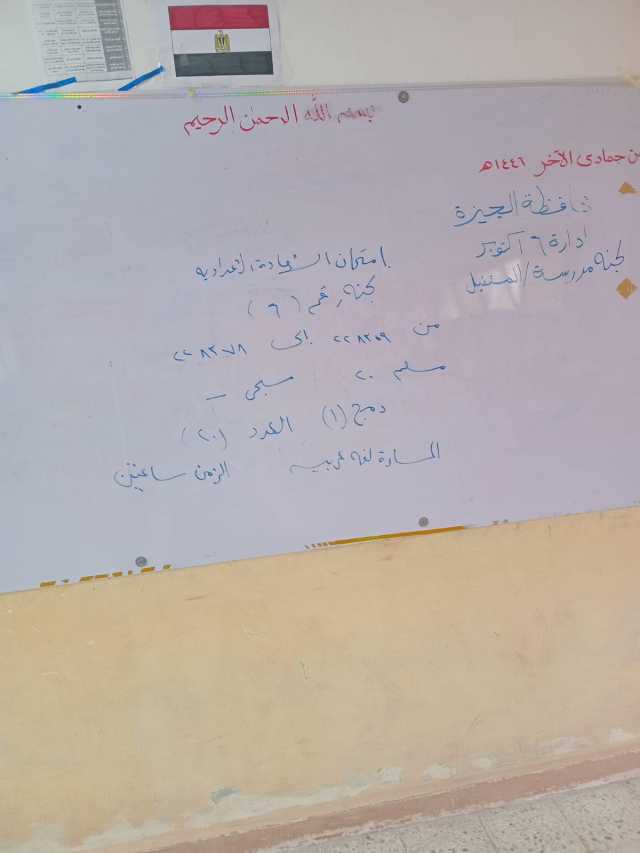 بسم الله الرحمن الرحيم
من جمادى الآخر ١٤٤٦هـ
محافظة الجيزة
ادارة ٦ اكتوبر
لجنة مدرسة / المستقبل
امتحان الشهادة الاعدادية
لجنة رقم (٦)
من ٢٢٨٣٥٩ الى ٢٢٨٣٧٨
مسلم ٢٠ مسيحى -
دمج (١) العدد (٢٠)
المادة لغه عربيه الزمن ساعتين